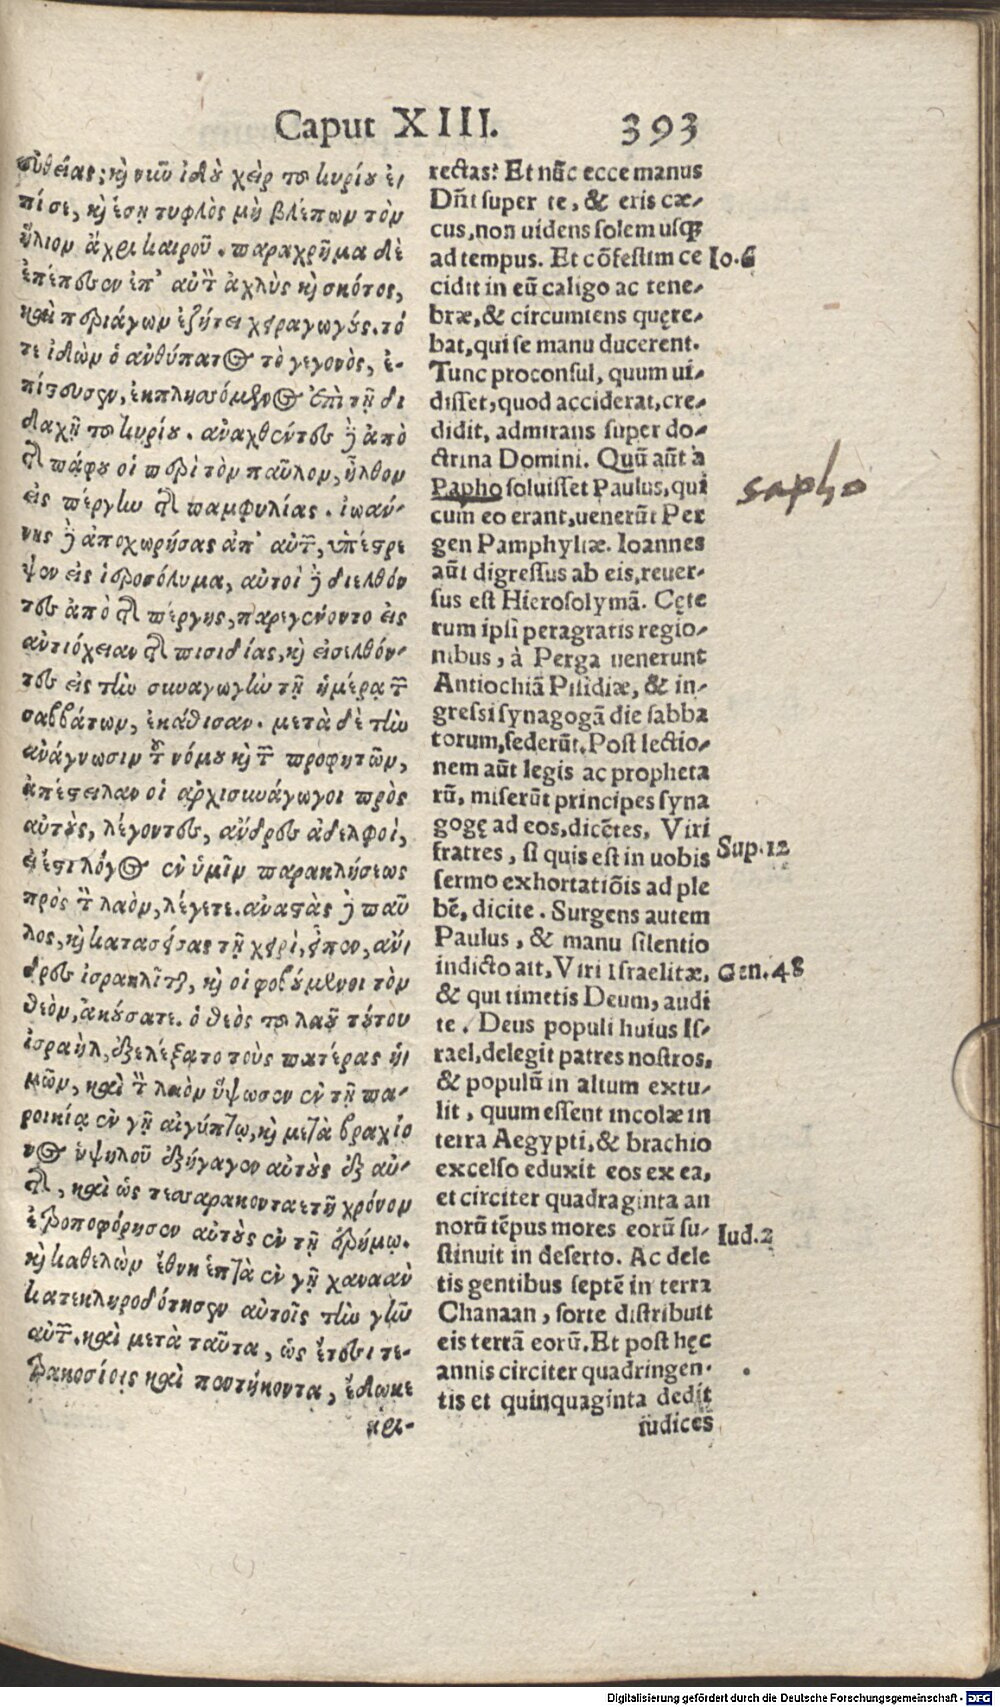 Caput XIII. 393
εὐθείας; κỳ νιῶ ἰδοὺ χεὶρ τοῦ κυρίου ἐ-
πί σε, κỳ ἔσῃ τυφλὸς μὴ βλέπων τὸν
ἥλιον ἄχρι καιροῦ. παραχρῆμα δὲ
ἐπέπεσεν ἐπ' αὐτ̃ ἀχλὺς κỳ σκότος,
καὶ περιάγων ἐζήτει χειραγωγούς. τό
τε ἰδὼν ὁ ἀνθύπατος τὸ γεγονὸς, ἐ-
πίστευσεν, ἐκπλησσόμενος ἐπὶ τῇ δι
δαχῇ τοῦ κυρίου. ἀναχθέντες ἢ ἀπὸ
τῆς πάφου οἱ περὶ τὸν παῦλον, ἦλθον
εἰς πέργίω τῆς παμφυλίας. ἰωάν-
νης ἢ ἀποχωρήσας ἀπ' αὐτ̃, ὑπέστρε
ψεν εἰς ἱεροσόλυμα, αὐτοὶ ἢ διελθόν
τες ἀπὸ τῆς πέργης, παρεγένοντο εἰς
ἀντιόχειαν τῆς πισιδίας, κỳ εἰσελθόν-
τες εἰς τίω συναγωγίω τῇ ἡμέρᾳ τ̃
σαββάτων, ἐκάθισαν. μετὰ δὲ τίω
ἀνάγνωσιν τοῦ νόμου κỳ τ̃ προφητῶν,
ἀπέστειλαν οἱ ἀρχισυνάγωγοι πρὸς
αὐτοὺς, λέγοντες, ἄνδρες ἀδελφοὶ,
εἰ ἔστι λόγος ἐν ὑμῖν παρακλήσεως
πρὸς τ̀ λαὸν, λέγετε. ἀναστὰς ἢ παῦ
λος, κỳ κατασείσας τῇ χειρὶ, εἶπεν, ἄν
δρες ἰσραηλῖται, κỳ οἱ φοβούμενοι τὸν
θεὸν, ἀκούσατε. ὁ θεὸς τοῦ λαοῦ τούτου
ἰσραὴλ, ἐξελέξατο τοὺς πατέρας ἡ
μῶν, καὶ τ̀ λαὸν ὕψωσεν ἐν τῇ πα-
ροικίᾳ ἐν γῇ αἰγύπτῳ, κỳ μετὰ βραχίο
νος ὑψηλοῦ ἐξήγαγεν αὐτοὺς ἐξ αὐ-
τῆς, καὶ ὡς τεσσαρακονταετῆ χρόνον
ἐτροποφόρησεν αὐτοὺς ἐν τῇ ἐρήμῳ.
κỳ καθελὼν ἔθνη ἑπτὰ ἐν γῇ χαναὰν
κατεκληροδότησεν αὐτοῖς τίω γίω
αὐτ̃. καὶ μετὰ ταῦτα, ὡς ἔτεσι τε-
τρακοσίοις καὶ πεντήκοντα, ἔδωκε
κρι-
rectas? Et nūc ecce manus
Dñi super te, & eris cæ-
cus, non uidens solem usq;
ad tempus. Et cōfestim ce
cidit in eū caligo ac tene-
bræ, & circumiens quęre-
bat, qui se manu ducerent.
Tunc proconsul, quum ui-
disset, quod acciderat, cre-
didit, admirans super do-
ctrina Domini. Quū aūt a
Papho soluisset Paulus, qui
cum eo erant, uenerūt Per
gen Pamphyliæ. Ioannes
aūt digressus ab eis, reuer-
sus est Hierosolymā. Cęte
rum ipsi peragratis regio-
nibus, à Perga uenerunt
Antiochiā Pisidiæ, & in-
gressi synagogā die sabba
torum, sederūt. Post lectio-
nem aūt legis ac propheta
rū, miserūt principes syna
gogę ad eos, dicētes, Viri
fratres, si quis est in uobis
sermo exhortatiōis ad ple
bē, dicite. Surgens autem
Paulus, & manu silentio
indicto ait, Viri Israelitæ,
& qui timetis Deum, audi
te. Deus populi huius Is-
rael, delegit patres nostros,
& populū in altum extu-
lit, quum essent incolæ in
terra Aegypti, & brachio
excelso eduxit eos ex ea,
et circiter quadraginta an
norū tēpus mores eorū su-
stinuit in deserto. Ac dele
tis gentibus septē in terra
Chanaan, sorte distribuit
eis terrā eorū. Et post hęc
annis circiter quadringen-
tis et quinquaginta dedit
iudices
Io. 6
sapho
Sup. 12
Gen. 48
Iud. 2
Digitalisierung gefördert durch die Deutsche Forschungsgemeinschaft - DFG